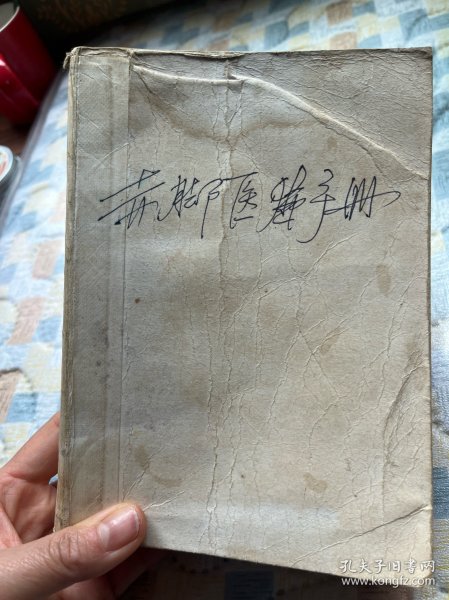 赤脚医疗手册
孔夫子旧书网
www.kongfz.com